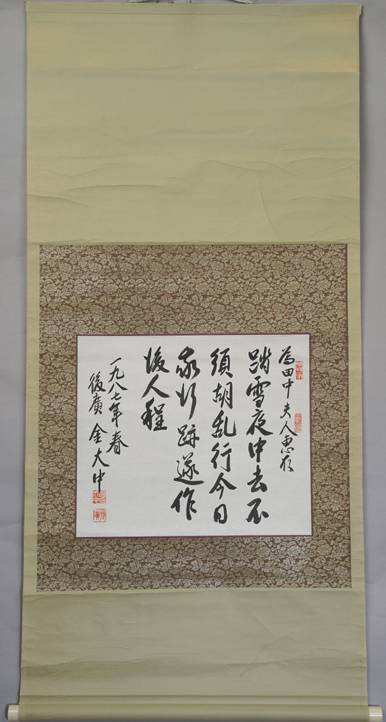 為田中夫人恵存
踏雪夜中去不
須胡乱行今日
我行跡遂作
後人程
一九八七年春
後廣 金大中